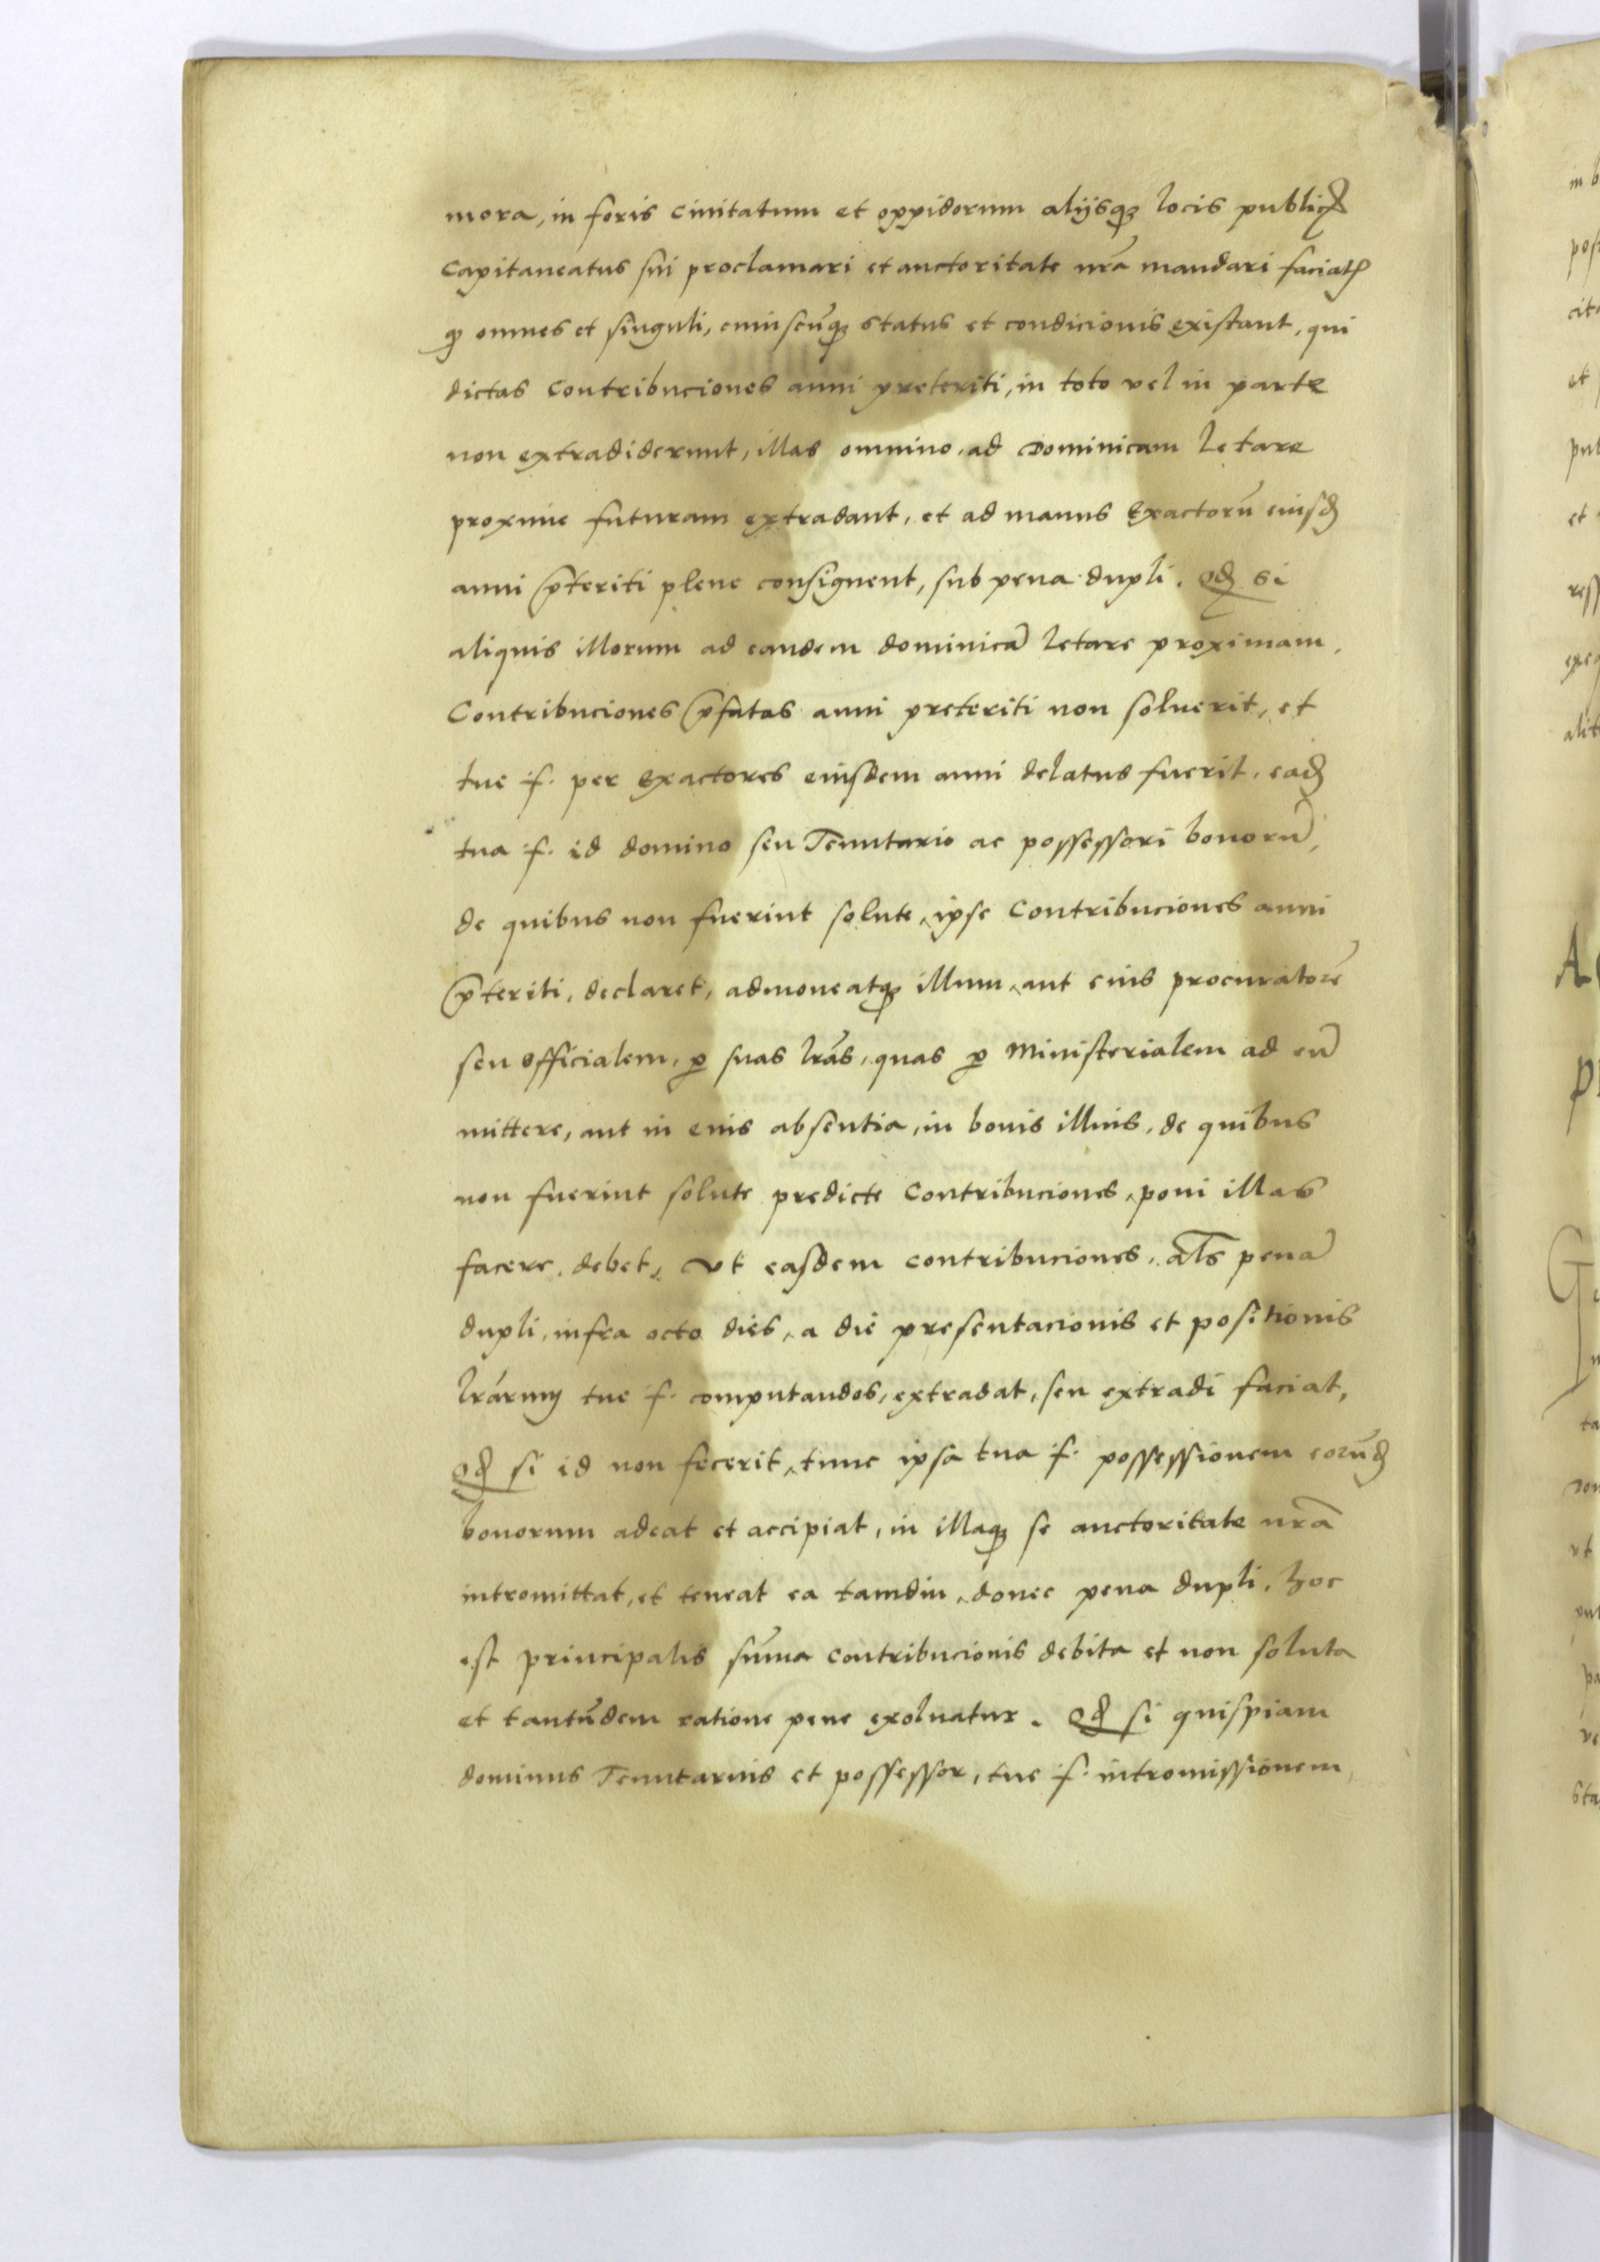 mora, in foris civitatum et oppidorum alijsqꝫ locis publicꝭ
Capitaneatus sui proclamari et auctoritate nr̃a mandari faciatꝭ
ꝙ omnes et singuli, cuiuscũqꝫ status et condicionis existant, qui
dictas Contribuciones anni preteriti, in toto vel in parte
non extradiderunt, illas omnino, ad Dominicam letare
proxime futuram extradant, et ad manus Exactorũ eiusđ
anni p̃teriti plene consignent, sub pena dupli. Qđ si
aliquis illorum ad eandem dominicã letare proximam,
Contribuciones p̃fatas anni preteriti non solverit, et
tue f. per Exactores eiusdem anni delatus fuerit, eađ
tua f. id domino seu Tenutario ac possessori bonorũ,
de quibus non fuerint solute, ipse Contribuciones anni
p̃teriti, declaret, admoneatqꝫ illum, aut eius procuratorẽ
seu officialem, ꝑ suas lr̃as, quas ꝑ Ministerialem ad eũ
mittere, aut in eius absentia, in bonis illius, de quibus
non fuerint solute predicte contribuciones, poni illas
facere, debet, vt easdem contribuciones, al̃s penã
dupli, infra octo dies, a die presentacionis et positionis
lr̃arum tue f. computandos, extradat, seu extradi faciat,
Qđ si id non fecerit, tunc ipsa tua f. possessionem eorũđ
bonorum adeat et accipiat, in illaqꝫ se auctoritate nr̃a
intromittat, et teneat ea tamdiu, donec pena dupli, hoc
est principalis sum̃a contribucionis debita et non soluta
et tantũdem ratione pene exolvatur. Qđ si quispiam
dominus Tenutarius et possessor, tue f. intromissionem